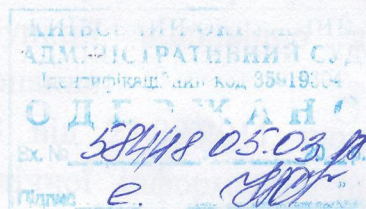 КИЇВСЬКИЙ ОКРУЖНИЙ
АДМІНІСТРАТИВНИЙ СУД
Ідентифікаційний код 35919304
ОДЕРЖАНО
Вх. № 584418 05.03.
Підпис